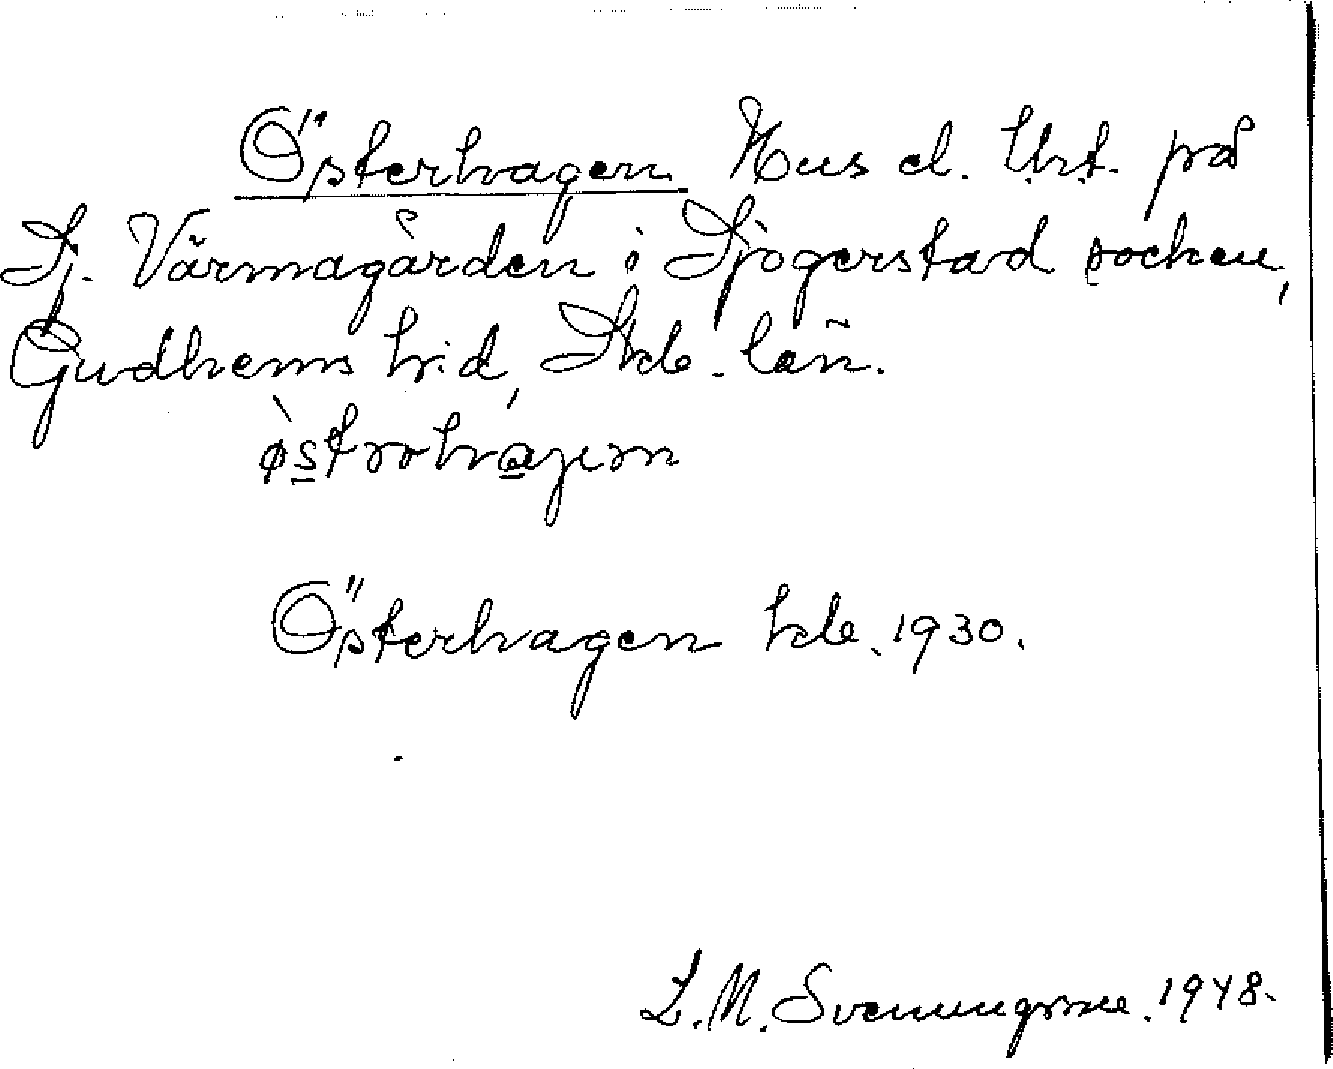 Österhagen Hus el. lht. på
Sj. Värmagården i Sjogerstad socken,
Gudhems hrd, Skb. län.
Österhagen kb. 1930.
L. M. Svenungsson. 1948.